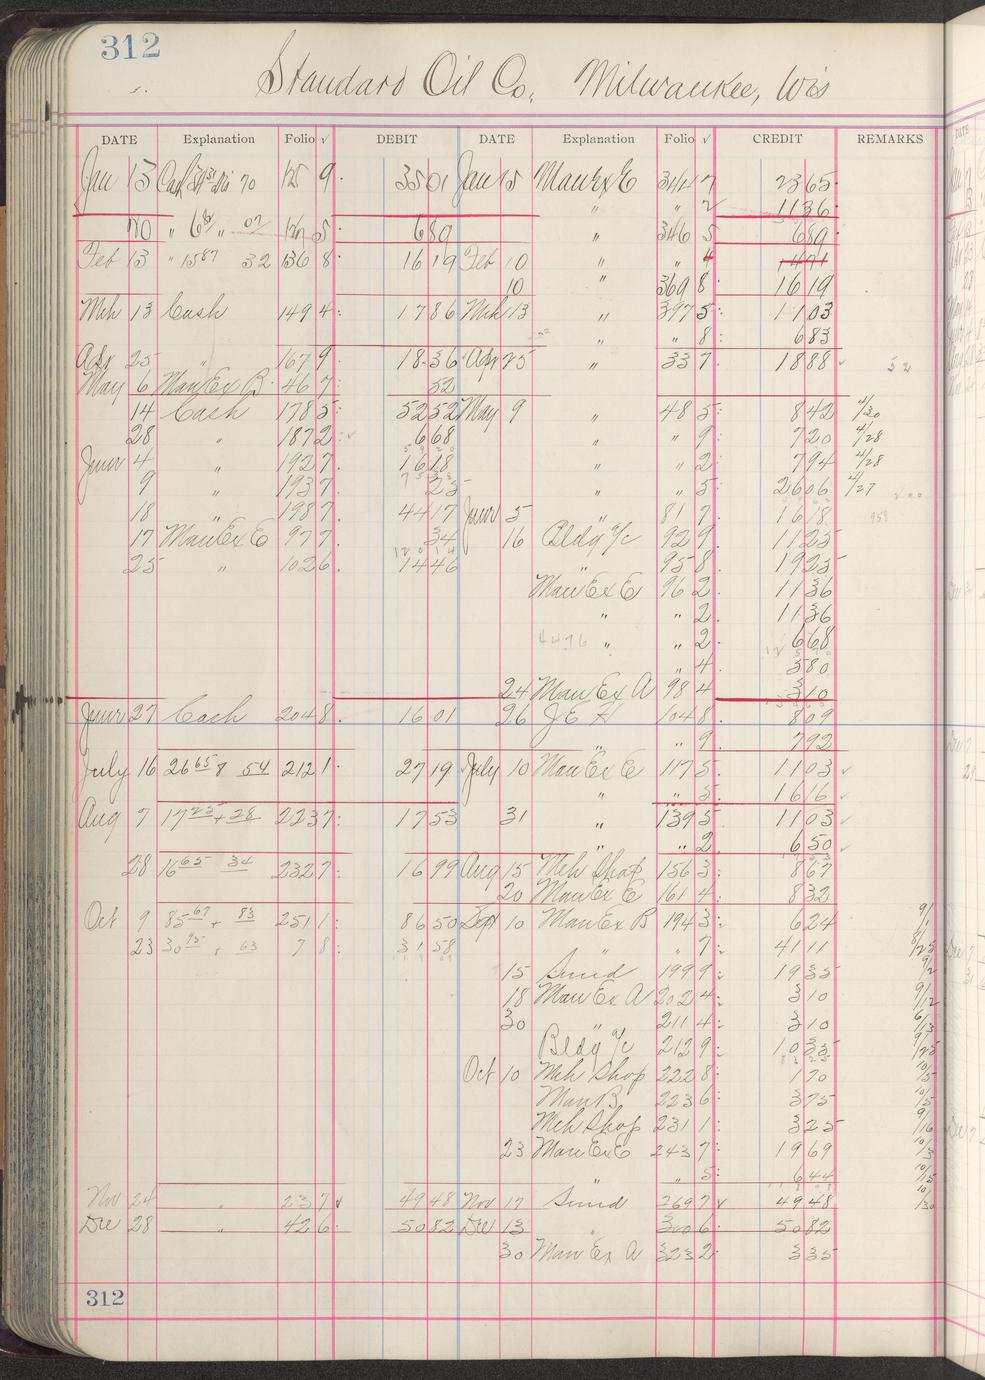 312
Standard Oil Co. Milwaukee, Wis
DATE Explanation Folio √ DEBIT DATE Explanation Folio √ CREDIT REMARKS
Jan 13 Cash 70 125 9 35 01 Jan 15 Man Ex E 344 7 23 65
" " 2 11 36
20 " 6 82 " 07 127 5 6 89 " 346 5 6 89
Feb 13 " 15 87 32 136 8 16 19 Feb 10 " " 4 14 71
10 " 369 8 16 19
Mch 13 Cash 149 4 17 86 Mch 13 " 397 5 11 03
" " 8 6 83
Apr 25 " 167 9 18 36 Apr 25 " 33 7 18 88 52
May 6 Man Ex B 46 7 52
14 Cash 178 5 52 52 May 9 " 48 5 8 42 4/20
28 " 187 2 6 68 " " 9 7 20 4/28
June 4 " 192 7 16 18 " " 2 7 94 4/28
9 " 193 7 25 " " 5 26 06 4/27
18 " 198 7 44 17 June 5 " 81 7 16 18 958
17 Man Ex E 97 7 34 16 Bldg a/c 92 9 11 25
25 " 102 6 14 46 " 95 8 19 25
Man Ex E 96 2 11 36
" " 2 11 36
44.76 " " 2 6 68
" 4 5 80
24 Man Ex A 98 4 3 10
June 27 Cash 204 8 16 01 26 J E H 104 8 8 09
" " 9 7 92
July 16 26 65 8 54 212 1 27 19 July 10 Man Ex E 117 5 11 03 √
" " 5 16 16 √
Aug 7 17 25 + 28 223 7 17 53 31 " 139 5 11 03 √
" 2 6 50 √
28 16 65 34 232 7 16 99 Aug 15 Mch Shop 156 3 8 67
20 Man Ex E 161 4 8 32
Oct 9 85 67 + 83 251 1 86 50 Sept 10 Man Ex B 194 3 6 24 9/1
23 30 95 + 63 7 8 31 58 " " 7 41 11
15 Sund 199 9 19 35 9/2
18 Man Ex A 202 4 3 10 9/12
30 " 211 4 3 10
Bldg a/c 212 9 10 35 9/25
Oct 10 Mch Shop 222 8 1 70 10/5
Man B 223 6 3 75 10/5
Mch Shop 231 1 3 25 9/16
23 Man Ex E 243 7 19 69 10/3
" " 5 6 44 10/15
Nov 24 " 23 7 √ 49 48 Nov 17 Sund 269 7 √ 49 48 10/30
Dec 28 " 42 6 50 82 Dec 13 " 300 6 50 82
30 Man Ex A 323 2 3 35
312